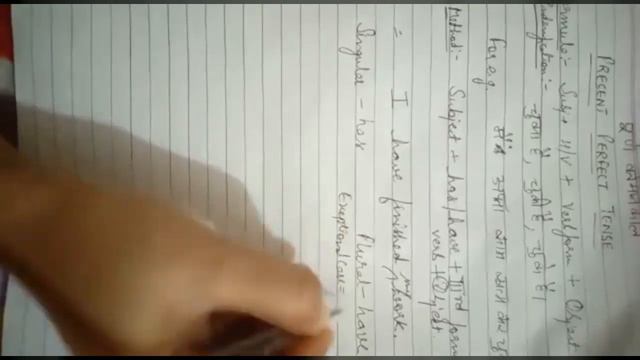 पूर्ण वर्तमान काल
PRESENT PERFECT TENSE
ormula:- Sub + H/V + Verb form + Object
Indentification:- चुका है, चुकी है, चुके हैं।
For e.g. मैंने अपना काम
Method:- Subject + has/have + IIIrd form
verb + Object
= I have finished my work.
Singular - has Plural - have
Exceptional Case =